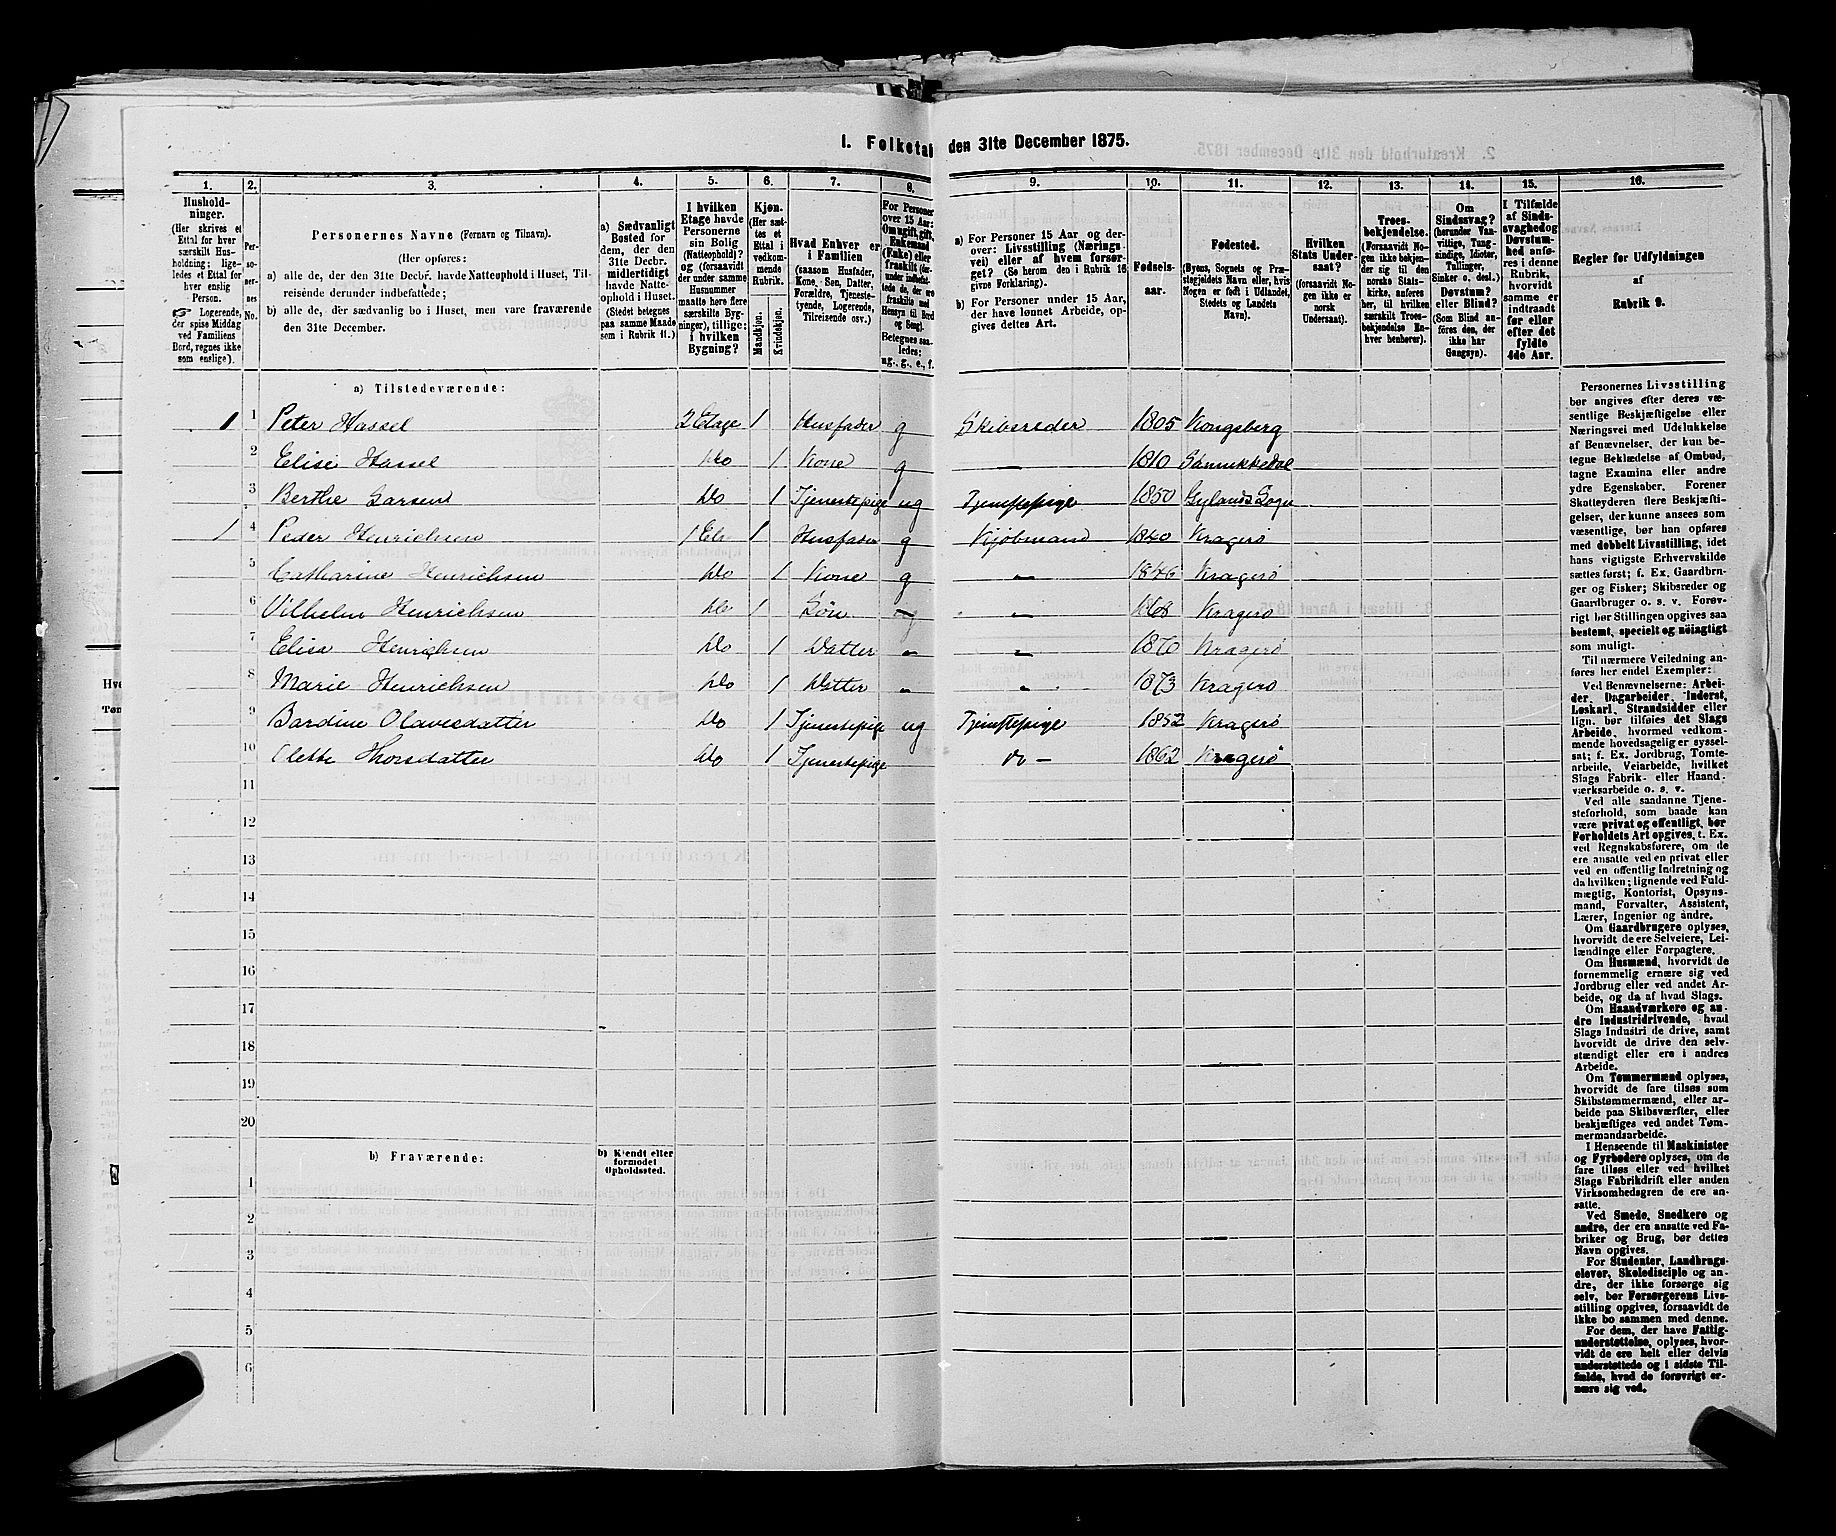 1. Folketal den 31te December 1875.
1. 2. 3. 4. 5. 6. 7. 8. 9. 10. 11. 12. 13. 14. 15. 16.
Husholdninger. (Her skrives et Ettal for hver særskilt Husholdning; ligeledes et Ettal for hver enslig Person. Logerende, der spise Middag ved Familiens Bord, regnes ikke som enslige).
Personernes No.
Personernes Navne (Fornavn og Tilnavn).
(Her opføres:
a) alle de, der den 31te Decbr. havde Natteophold i Huset, Tilreisende derunder indbefattede;
b) alle de, der sædvanlig bo i Huset, men vare fraværende den 31te December.
a) Sædvanligt Bosted for dem, der den 31te Decbr. midlertidigt havde Natteophold i Huset. (Stedet betegnes paa samme Maade som i Rubrik 11.)
I hvilken Etage havde Personerne sin Bolig (Natteophold)? og (forsaavidt der under samme Husnummer maatte høre flere særskilte Bygninger), tillige: i hvilken Bygning?
Kjøn. (Her sættes et Ettal i vedkommende Rubrik. Mandkjøn. Kvindekjøn.
Hvad Enhver er i Familien (saasom Husfader, Kone, Søn, Datter, Forældre, Tjenestetyende, Logerende, Tilreisende osv.)
a) For Personer 15 Aar og derover: Livsstilling (Næringsvei) eller af hvem forsørget? (Se herom den i Rubrik 16 givne Forklaring).
b) For Personer under 15 Aar, der have lønnet Arbeide, opgives dettes Art.
Fødselsaar.
Fødested. (Byens, Sognets og Præstegjeldets Navn eller, hvis Nogen er født i Udlandet, Stedets og Landets Navn).
Hvilken Stats Undersaat? (forsaavidt Nogen ikke er norsk Undersaat).
Troesbekjendelse. (Forsaavidt Nogen ikke bekjender sig til den norske Statskirke, anføres her, til hvilken særskilt Troesbekjendelse Enhver henhører).
Om Sindssvag? (herunder Vanvittige, Tungsindige, Idioter, Tullinger, Sinker o. desl.) Døvstum? eller Blind? (Som Blind anføres den, der ikke har Gangsyn).
I Tilfælde af Sindssvaghed og Døvstumhed anføres i denne Rubrik, hvorvidt samme er indtraadt før eller efter det fyldte 4de Aar.
Regler for Udfyldningen af Rubrik 9.
a) Tilstedeværende:
1 1 Peter Hassel 2 Etage 1 Husfader g Skibsreder 1805 Kongsberg
2 Elise Hassel Do 1 Kone g 1810 Sannikkedal
3 Berthe Larsen Do 1 Tjenestepige ug Tjenestepige 1850 Gylands Sogn
1 4 Peder Henrichsen 1 Et 1 Husfader g Kjøbmand 1840 Kragerø
5 Catharine Henrichsen Do 1 Kone g 1846 Kragerø
6 Vilhelm Henrichsen Do 1 Søn 1868 Kragerø
7 Elisa Henrichsen Do 1 Datter 1870 Kragerø
8 Marie Henrichsen Do 1 Datter 1873 Kragerø
9 Bardine Olavesdatter Do 1 Tjenestepige ug Tjenestepige 1852 Kragerø
10 Thorsdatter Do 1 Tjenestepige do 1862 Kragerø
11
12
13
14
15
16
17
18
19
20
b) Fraværende: b) Kjendt eller formodet Opholdssted.
1
2
3
4
5
6
Personernes Livsstilling
bør angives efter deres væsentlige
Beskjæftigelse eller
Næringsvei med Udelukkelse
af Benævnelser, der kun betegne
Beklædelse af Ombud,
tagne Examina eller andre
ydre Egenskaber. Forener
Skatteyderen flere Beskjæftigelser,
der kunne ansees som
væsentlige, bør han opføres
med dobbelt Livsstilling, idet
hans vigtigste Erhvervskilde
sættes først; f. Ex. Gaardbruger
og Fisker; Skibsreder og
Gaardbruger o. s. v. Forøvrigt
bør Stillingen opgives saa
bestemt, specielt og nøiagtigt
som muligt.
Til nærmere Veiledning anføres
her endel Exempler:
Ved Benævnelserne: Arbeider,
Dagarbeider, Inderst,
Løskarl, Strandsidder eller
lign. bør tilføies det Slags
Arbeide, hvormed vedkommende
hovedsagelig er sysselsat;
f. Ex. Jordbrug, Tomtearbeide,
Veiarbeide, hvilket
Slags Fabrik- eller Haandværksarbeide
o. s. v.
Ved alle saadanne Tjenesteforhold,
som baade kan
være privat og offentligt, bør
Forholdets Art opgives, t. Ex.
ved Regnskabsførere, om de
ere ansatte ved en privat eller
ved en offentlig Indretning og
da hvilken; lignende ved Fuldmægtig,
Kontorist, Opsynsmand,
Forvalter, Assistent,
Lærer, Ingeniør og andre.
Om Gaardbrugere oplyses,
hvorvidt de ere Selveiere, Leilændinge
eller Forpagtere.
Om Husmænd, hvorvidt de
fornemmelig ernære sig ved
Jordbrug eller ved andet Arbeide,
og da af hvad Slags.
Om Haandværkere og andre
Industridrivende, hvad
Slags Industri de drive, samt
hvorvidt de drive den selvstændigt
eller ere i andres
Arbeide.
Om Tømmermænd oplyses,
hvorvidt de fare tilsøs som
Skibstømmermænd, eller arbeide
paa Skibsværfter, eller
beskjæftiges ved andet Tømmermandsarbeide.
I Henseende til Maskinister
og Fyrbødere oplyses, om de
fare tilsøs eller ved hvilket
Slags Fabrikdrift eller anden
Virksomhedsgren de ere ansatte.
Ved Smede, Snedkere og
andre, der ere ansatte ved Fabriker
og Brug, bør dettes
Navn opgives.
For Studenter, Landbrugselever,
Skoledisciple og andre,
der ikke forsørge sig
selv, bør Forsørgerens Livsstilling
opgives, forsaavidt de
ikke bo sammen med denne.
For dem, der have Fattigunderstøttelse,
oplyses, hvorvidt
de ere helt eller delvis
understøttede og i sidste Tilfælde,
hvad de forøvrigt ernære
sig ved.